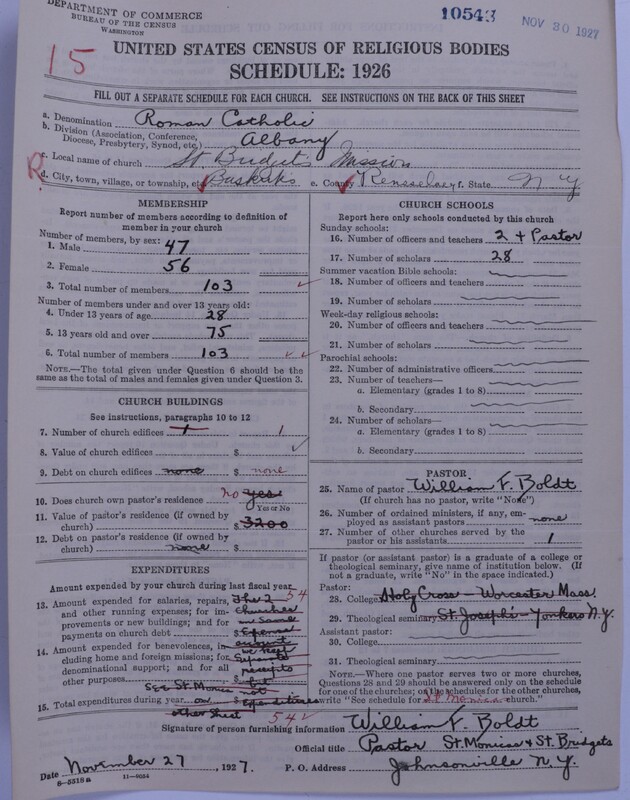 DEPARTMENT OF COMMERCE
BUREAU OF THE CENSUS
WASHINGTON
10543
NOV 30 1927
15
UNITED STATES CENSUS OF RELIGIOUS BODIES
SCHEDULE: 1926
FILL OUT A SEPARATE SCHEDULE FOR EACH CHURCH. SEE INSTRUCTIONS ON THE BACK OF THIS SHEET
a. Denomination Roman Catholic
b. Division (Association, Conference, Diocese, Presbytery, Synod, etc.) Albany
c. Local name of church St. Bridgets Mission
R
d. City, town, village, or township, etc. e. County Rensselaer f. State N Y
MEMBERSHIP
Report number of members according to definition of
member in your church
Number of members, by sex:
1. Male 47
2. Female 56
3. Total number of members 103
Number of members under and over 13 years old:
4. Under 13 years of age 28
5. 13 years old and over 75
6. Total number of members 103
NOTE.—The total given under Question 6 should be
the same as the total of males and females given under Question 3.
CHURCH BUILDINGS
See instructions, paragraphs 10 to 12
7. Number of church edifices 1 1
8. Value of church edifices $
9. Debt on church edifices none $ none
10. Does church own pastor's residence no yes
Yes or No
11. Value of pastor's residence (if owned by
church) $ 3200
12. Debt on pastor's residence (if owned by
church) none $
EXPENDITURES
Amount expended by your church during last fiscal year
13. Amount expended for salaries, repairs, The 2 54
and other running expenses; for im- churches
provements or new buildings; and for on same
payments on church debt expense
14. Amount expended for benevolences, in- account
cluding home and foreign missions; for we keep
denominational support; and for all separate
other purposes receipts
See St. Monica
15. Total expenditures during year on expenditures
other sheet 54
CHURCH SCHOOLS
Report here only schools conducted by this church
Sunday schools:
16. Number of officers and teachers 2 + Pastor
17. Number of scholars 28
Summer vacation Bible schools:
18. Number of officers and teachers
19. Number of scholars
Week-day religious schools:
20. Number of officers and teachers
21. Number of scholars
Parochial schools:
22. Number of administrative officers
23. Number of teachers—
a. Elementary (grades 1 to 8)
b. Secondary
24. Number of scholars—
a. Elementary (grades 1 to 8)
b. Secondary
PASTOR
25. Name of pastor William F. Boldt
(If church has no pastor, write "None")
26. Number of ordained ministers, if any, em-
ployed as assistant pastors none
27. Number of other churches served by the
pastor or his assistants 1
If pastor (or assistant pastor) is a graduate of a college or
theological seminary, give name of institution below. (If
not a graduate, write "No" in the space indicated.)
Pastor:
28. College Holy Cross — Worcester Mass.
29. Theological seminary St. Joseph's — Yonkers N.Y.
Assistant pastor:
30. College
31. Theological seminary
NOTE.—Where one pastor serves two or more churches,
Questions 28 and 29 should be answered only on the schedule
for one of the churches; on the schedules for the other churches,
write "See schedule for St. Monicas church."
Signature of person furnishing information William F. Boldt
Official title Pastor St. Monicas & St. Bridgets
Date November 27, 1927. P. O. Address Johnsonville N.Y.
8—5518a 11—9054